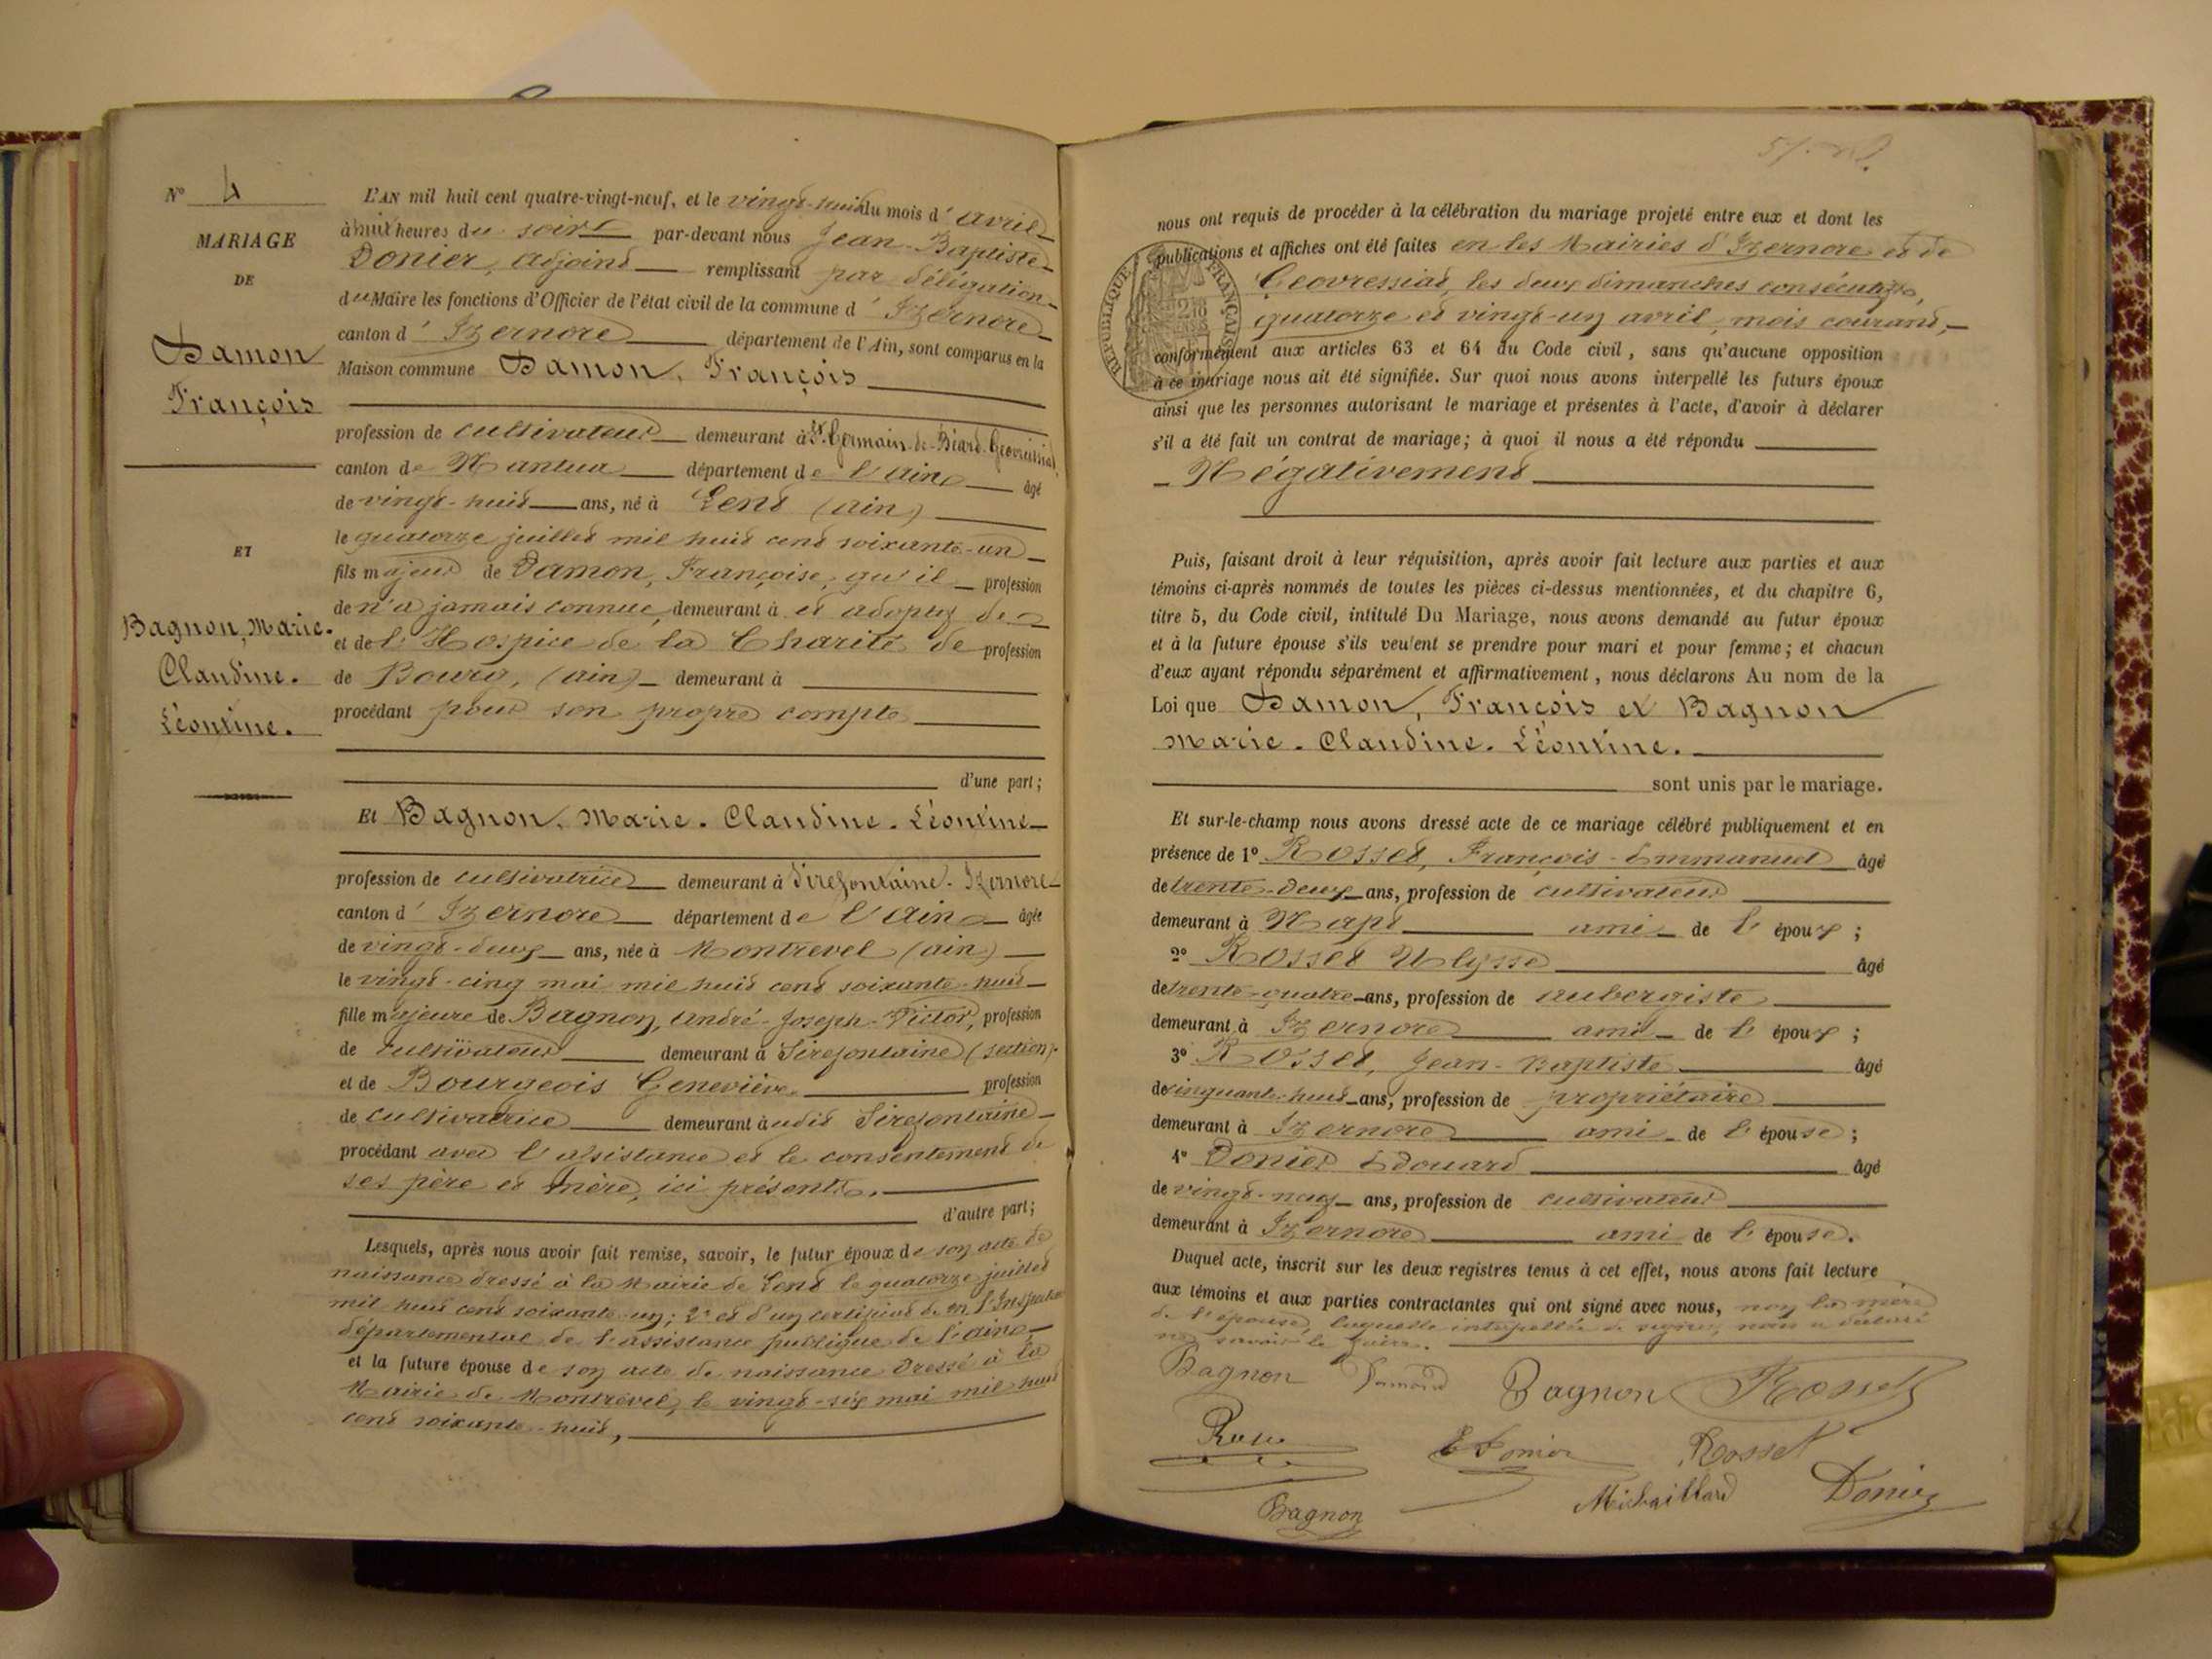 N° 4
MARIAGE
DE
Damon
François
ET
Bagnon, Marie.
Claudine.
Léontine.
L'AN mil huit cent quatre-vingt-neuf, et le vingt-huit du mois d'avril
à huit heures du soir par-devant nous Jean-Baptiste
Donier, adjoint remplissant par délégation
du Maire les fonctions d'Officier de l'état civil de la commune d'Izernore
canton d'Izernore département de l'Ain, sont comparus en la
Maison commune Damon, François
profession de cultivateur demeurant à St. Germain-de-Béard-Géovressiat
canton de Nantua département de l'ain âgé
de vingt-huit ans, né à Lent (ain)
le quatorze juillet mil huit cent soixante-un
fils majeur de Damon, Françoise, qu'il profession
de n'a jamais connue, demeurant à et adoptif de
et de l'Hospice de la Charité de profession
de Bourg, (ain) demeurant à
procédant pour son propre compte
d'une part;
Et Bagnon, Marie. Claudine. Léontine
profession de cultivatrice demeurant à Sirefontaine. Izernore
canton d'Izernore département de l'ain âgée
de vingt-deux ans, née à Montrevel (ain)
le vingt-cinq mai mil huit cent soixante-huit
fille majeure de Bagnon, André-Joseph-Victor, profession
de cultivateur demeurant à Sirefontaine (section).
et de Bourgeois Geneviève profession
de cultivatrice demeurant audit Sirefontaine
procédant avec l'assistance et le consentement de
ses père et mère, ici présents.
d'autre part;
Lesquels, après nous avoir fait remise, savoir, le futur époux de son acte de
naissance dressé à la Mairie de Lent le quatorze juillet
mil huit cent soixante-un; 2° et d'un certificat de M. l'Inspecteur
départemental de l'assistance publique de l'ain,
et la future épouse de son acte de naissance dressé à la
Mairie de Montrevel, le vingt-six mai mil huit
cent soixante-huit,
nous ont requis de procéder à la célébration du mariage projeté entre eux et dont les
publications et affiches ont été faites en les Mairies d'Izernore et de
Géovressiat, les deux dimanches consécutifs,
quatorze et vingt-un avril, mois courant,
conformément aux articles 63 et 64 du Code civil, sans qu'aucune opposition
à ce mariage nous ait été signifiée. Sur quoi nous avons interpellé les futurs époux
ainsi que les personnes autorisant le mariage et présentes à l'acte, d'avoir à déclarer
s'il a été fait un contrat de mariage; à quoi il nous a été répondu
Négativement
Puis, faisant droit à leur réquisition, après avoir fait lecture aux parties et aux
témoins ci-après nommés de toutes les pièces ci-dessus mentionnées, et du chapitre 6,
titre 5, du Code civil, intitulé Du Mariage, nous avons demandé au futur époux
et à la future épouse s'ils veulent se prendre pour mari et pour femme; et chacun
d'eux ayant répondu séparément et affirmativement, nous déclarons Au nom de la
Loi que Damon, François et Bagnon
Marie. Claudine. Léontine.
sont unis par le mariage.
Et sur-le-champ nous avons dressé acte de ce mariage célébré publiquement et en
présence de 1° Rosset, François-Emmanuel âgé
de trente-deux ans, profession de cultivateur
demeurant à Napt ami de l'époux;
2° Rosset Ulysse âgé
de trente-quatre ans, profession de aubergiste
demeurant à Izernore ami de l'époux;
3° Rosset, Jean-Baptiste âgé
de cinquante-huit ans, profession de propriétaire
demeurant à Izernore ami de l'épouse;
4° Donier Edouard âgé
de vingt-neuf ans, profession de cultivateur
demeurant à Izernore ami de l'épouse.
Duquel acte, inscrit sur les deux registres tenus à cet effet, nous avons fait lecture
aux témoins et aux parties contractantes qui ont signé avec nous, non la mère
de l'épouse, laquelle interpellée de signer, nous a déclaré
ne savoir le faire.
Bagnon Damond Bagnon Rosset
E Donier Rosset
Bagnon Michaillard Donier
RÉPUBLIQUE FRANÇAISE